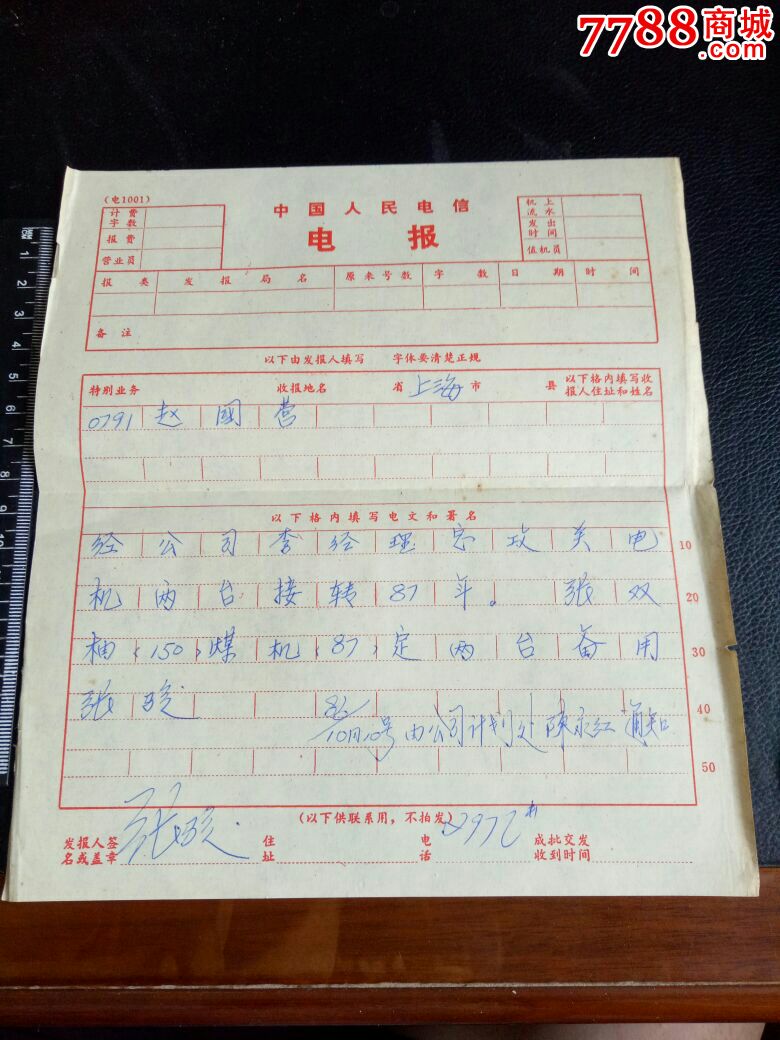 7788商城
.com
(电1001)
中国人民电信
电 报
计费字数
报费
营业员
机上流水
发出时间
值机员
报类 发报局名 原来号数 字数 日期 时间
备注
以下由发报人填写 字体要清楚正规
特别业务 收报地名 省 上海 市 县 以下格内填写收报人住址和姓名
0791 赵 國 营
以下格内填写电文和署名
经 公 司 李 经 理 攻 关 电 10
机 两 台 接 转 87 年。 张 双 20
柚 (150) 煤 机 (87) 定 两 台 备 用 30
张 骏 40
86/10月10号 由公司计划处陈永红通知
50
(以下供联系用,不拍发)
发报人签名或盖章 张骏 住址 电话 2972 成批交发收到时间